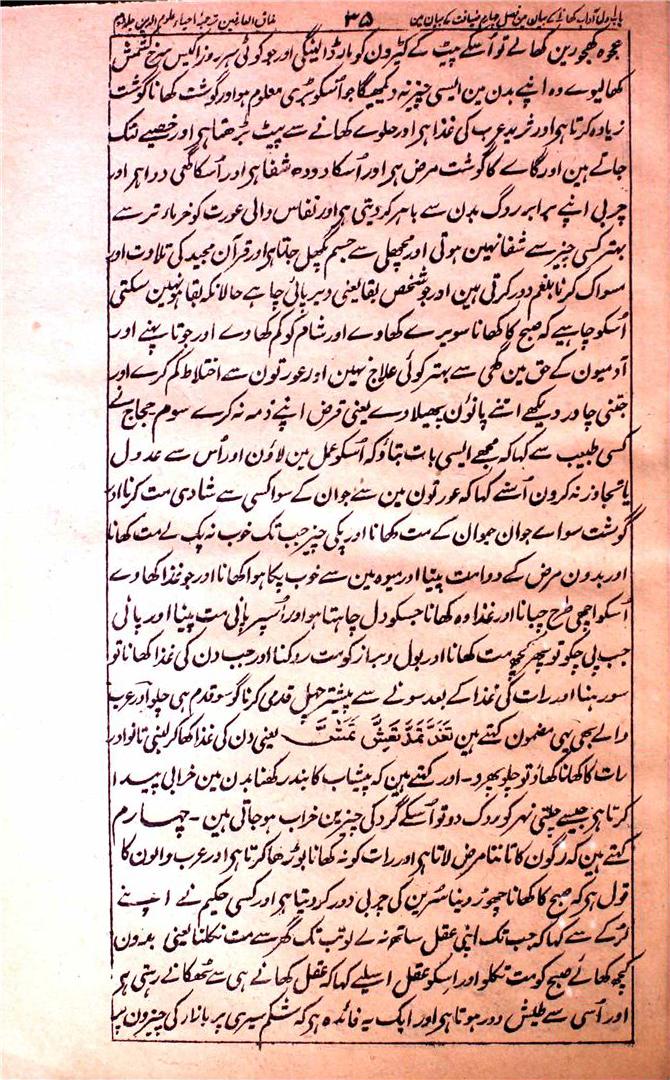 باب اول آداب کھانے کے بیان مین فصل چہارم ضیافت کے بیان مین ۳۵ مذاق العارفین ترجمۂ احیاء علوم الدین جلد دوم
عجوہ کھجورین کھالے تو اُسکے پیٹ کے کیڑون کو مار ڈالینگی اور جو کوئی ہر روز اکیس سرخ کشمش
کھالیوے وہ اپنے بدن مین ایسی چیز نہ دیکھیگا جو اُسکو بُری معلوم ہو اور گوشت کھانا گوشت
زیادہ کرتا ہی اور ثرید عرب کی غذا ہی اور حلوے کھانے سے پیٹ بڑھتا ہی اور خصیے لٹک
جاتے ہین اور گاے کا گوشت مرض ہی اور اُسکا دودھ شفا ہی اور اُسکا گھی دوا ہی اور
چربی اپنے برابر روگ بدن سے باہر کر دیتی ہی اور نفاس والی عورت کو خرماے تر سے
بہتر کسی چیز سے شفا نہین ہوتی اور مچھلی سے جسم پگھل جاتا ہی اور قرآن مجید کی تلاوت اور
مسواک کرنا بلغم دور کرتی ہین اور جو شخص بقا یعنی دیر پائی چاہے حالانکہ بقا ہو نہین سکتی
اُسکو چاہیے کہ صبح کا کھانا سویرے کھاوے اور شام کو کم کھاوے اور جوتا پہنے اور
آدمیون کے حق مین گھی سے بہتر کوئی علاج نہین اور عورتون سے اختلاط کم کرے اور
جتنی چادر دیکھے اتنے پانوُن پھیلاوے یعنی قرض اپنے ذمہ نہ کرے سوم حجاج نے
کسی طبیب سے کہا کہ مجھے ایسی بات بتاؤ کہ اُسکو عمل مین لاؤن اور اُس سے عدول
یا تجاوز نہ کرون اُسنے کہا کہ عورتون مین سے جوان کے سوا کسی سے شادی مت کرنا اور
گوشت سواے جوان حیوان کے مت کھانا اور پکی چیز جب تک خوب نہ پک لے مت کھانا
اور بدون مرض کے دوا مت پینا اور میوہ مین سے خوب پکا ہوا کھانا اور جو غذا کھاوے
اُسکو اچھی طرح چبانا اور غذا وہ کھانا جسکو دل چاہتا ہو اور اُسپر پانی مت پینا اور پانی
جب پی چکو تو پھر کچھ مت کھانا اور بول و براز کو مت روکنا اور جب دن کی غذا کھانا تو
سو رہنا اور رات کی غذا کے بعد سونے سے پیشتر چہل قدمی کرنا گو سو قدم ہی چلو اور عرب
والے بھی یہی مضمون کہتے ہین تَغَدَّ تَمَدَّ تَعَشَّ تَمَشَّ یعنی دن کی غذا کھا کر لنبی تانو اور
رات کا کھانا کھاؤ تو چلو پھرو - اور کہتے ہین کہ پیشاب کا بند رکھنا بدن مین خرابی پیدا
کرتا ہی جیسے چلتی نہر کو روک دو تو اُسکے گرد کی چیزین خراب ہو جاتی ہین - چہارم
کہتے ہین کہ رگون کا تاننا مرض لاتا ہی اور رات کو نہ کھانا بوڑھا کرتا ہی اور عرب والون کا
قول ہی کہ صبح کا کھانا چھوڑ دینا سُرین کی چربی دور کر دیتا ہی اور کسی حکیم نے اپنے
لڑکے سے کہا کہ جب تک اپنی عقل ساتھ نہ لے لو تب تک گھر سے مت نکلنا یعنی بدون
کچھ کھائے صبح کو مت نکلو اور اسکو عقل اسلیے کہا کہ عقل کھانے ہی سے ٹھکانے رہتی ہی
اور اُسی سے طیش دور ہوتا ہی اور ایک یہ فائدہ ہی کہ شکم سیری پر بازار کی چیزون پر